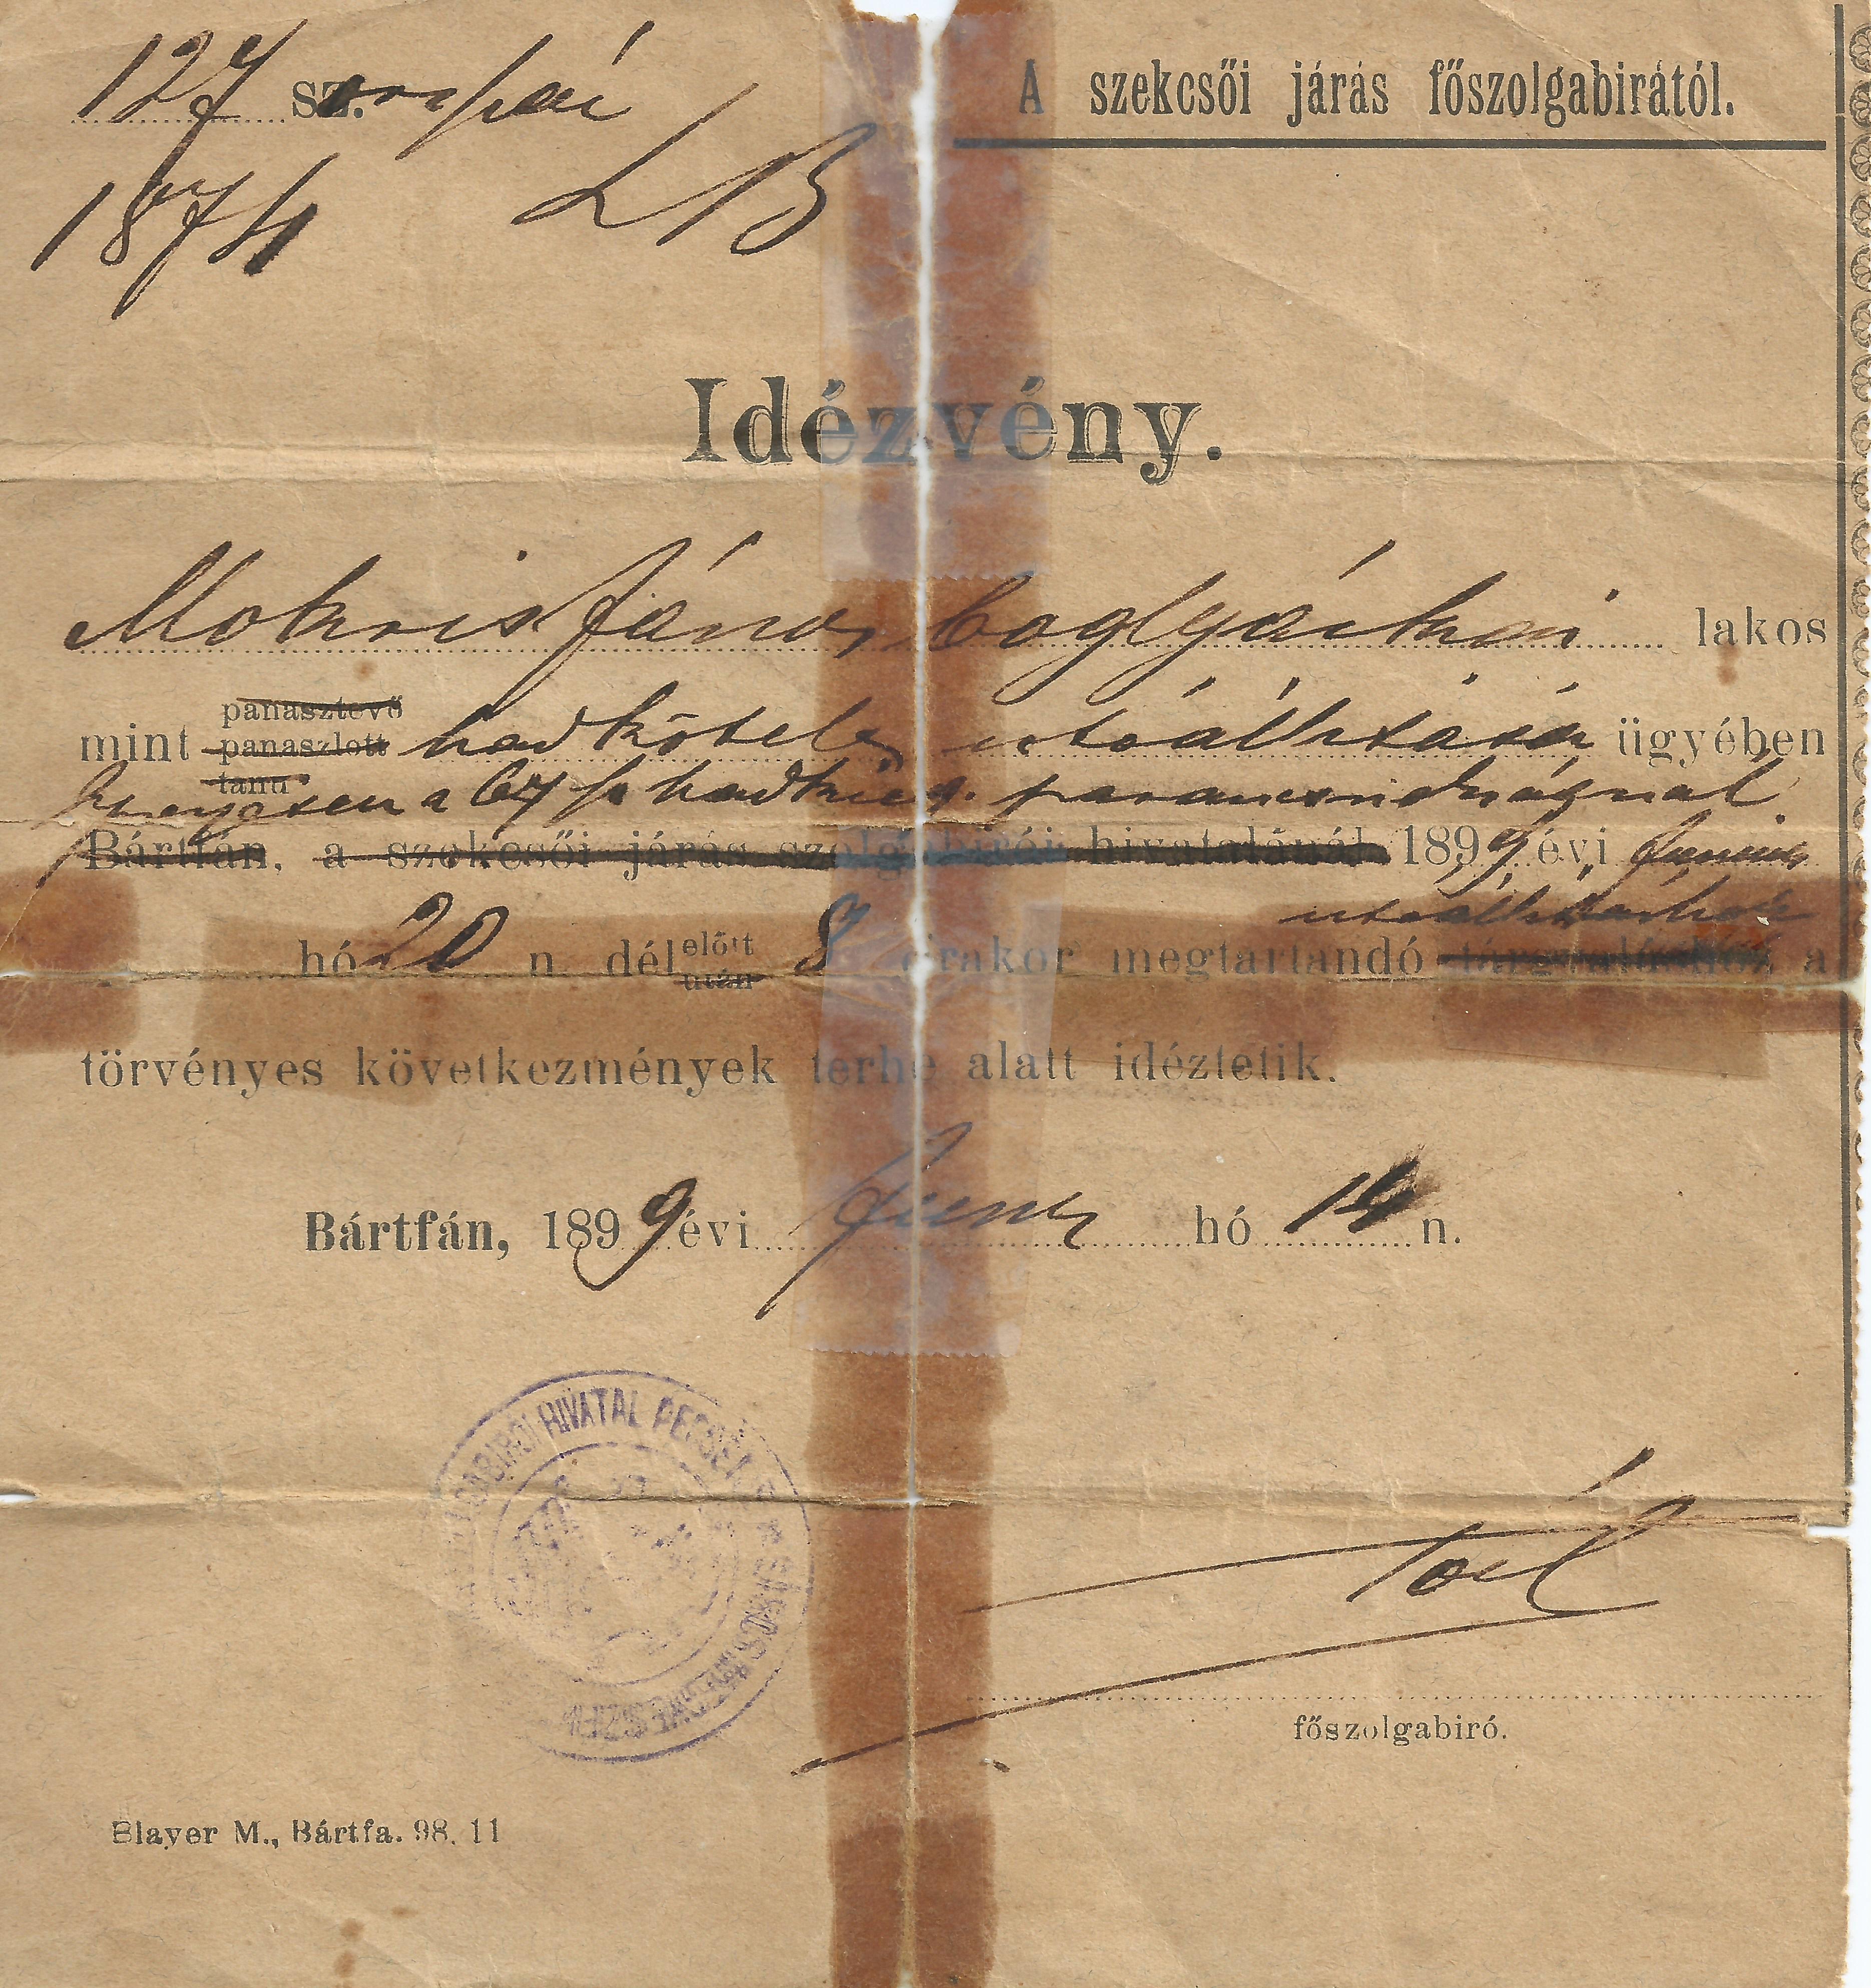 127 sz.
A szekcsői járás főszolgabirától.
1874 LB
Idézvény.
Mokris János boglyárkai lakos
panasztevő
mint panaszlott hadköteles utóállitása ügyében
tanu
Eperjesen a 67 hadkieg. parancsnokságnál
Bártfán, a szekcsői járás szolgabirói hivatalánál 1899 évi Junius
utóállitáshoz
hó 20 n. dél előtt 8 órakor megtartandó tárgyaláshoz a
után
törvényes következmények terhe alatt idéztetik.
Bártfán, 1899 évi Junius hó 14 n.
HIVATAL
főszolgabiró.
Blayer M., Bártfa. 98. 11